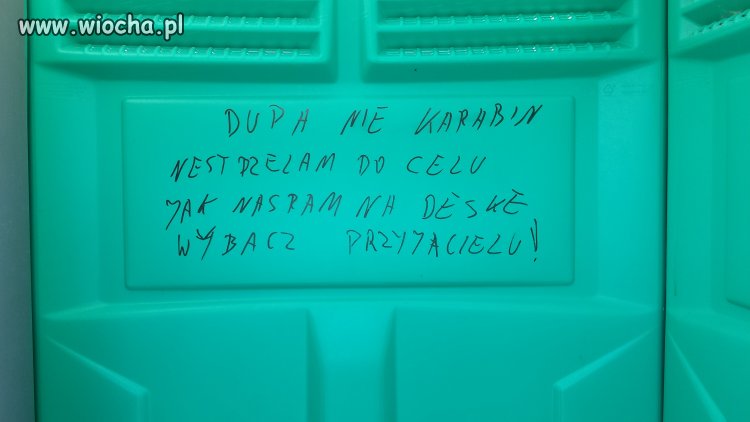 www.wiocha.pl
DUPA NIE KARABIN
NESTRZELAM DO CELU
JAK NASRAM NA DESKE
WYBACZ PRZYJACIELU!